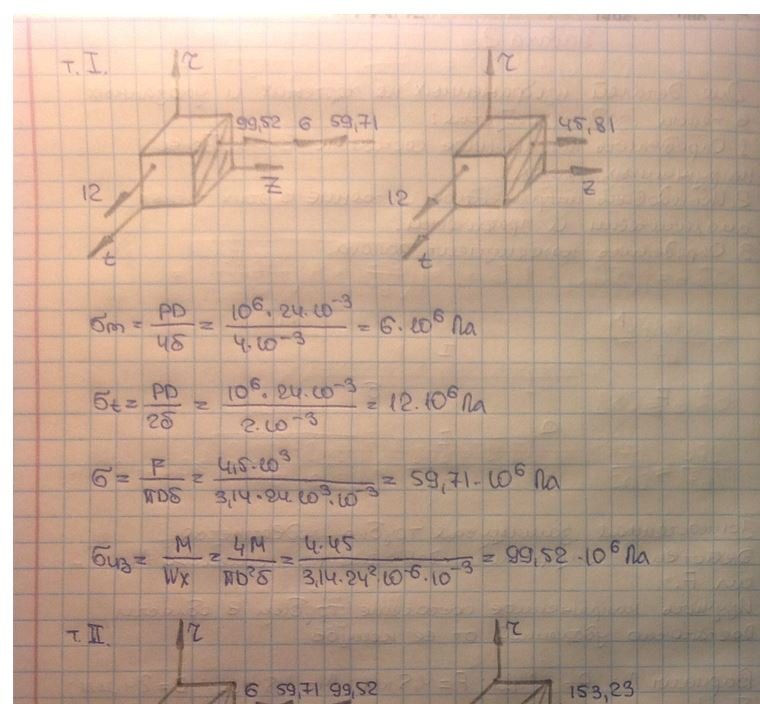 т. I. τ τ
99,52 6 59,71 45,81
12 z 12 z
t t
σm = PD/4δ = 10⁶·24·10⁻³/4·10⁻³ = 6·10⁶ Па
σt = PD/2δ = 10⁶·24·10⁻³/2·10⁻³ = 12·10⁶ Па
σ = F/πDδ = 4,5·10³/3,14·24·10³·10⁻³ = 59,71·10⁶ Па
σиз = M/Wx = 4M/πD²δ = 4·45/3,14·24²·10⁻⁶·10⁻³ = 99,52·10⁶ Па
т. II. τ τ
6 59,71 99,52 153,23